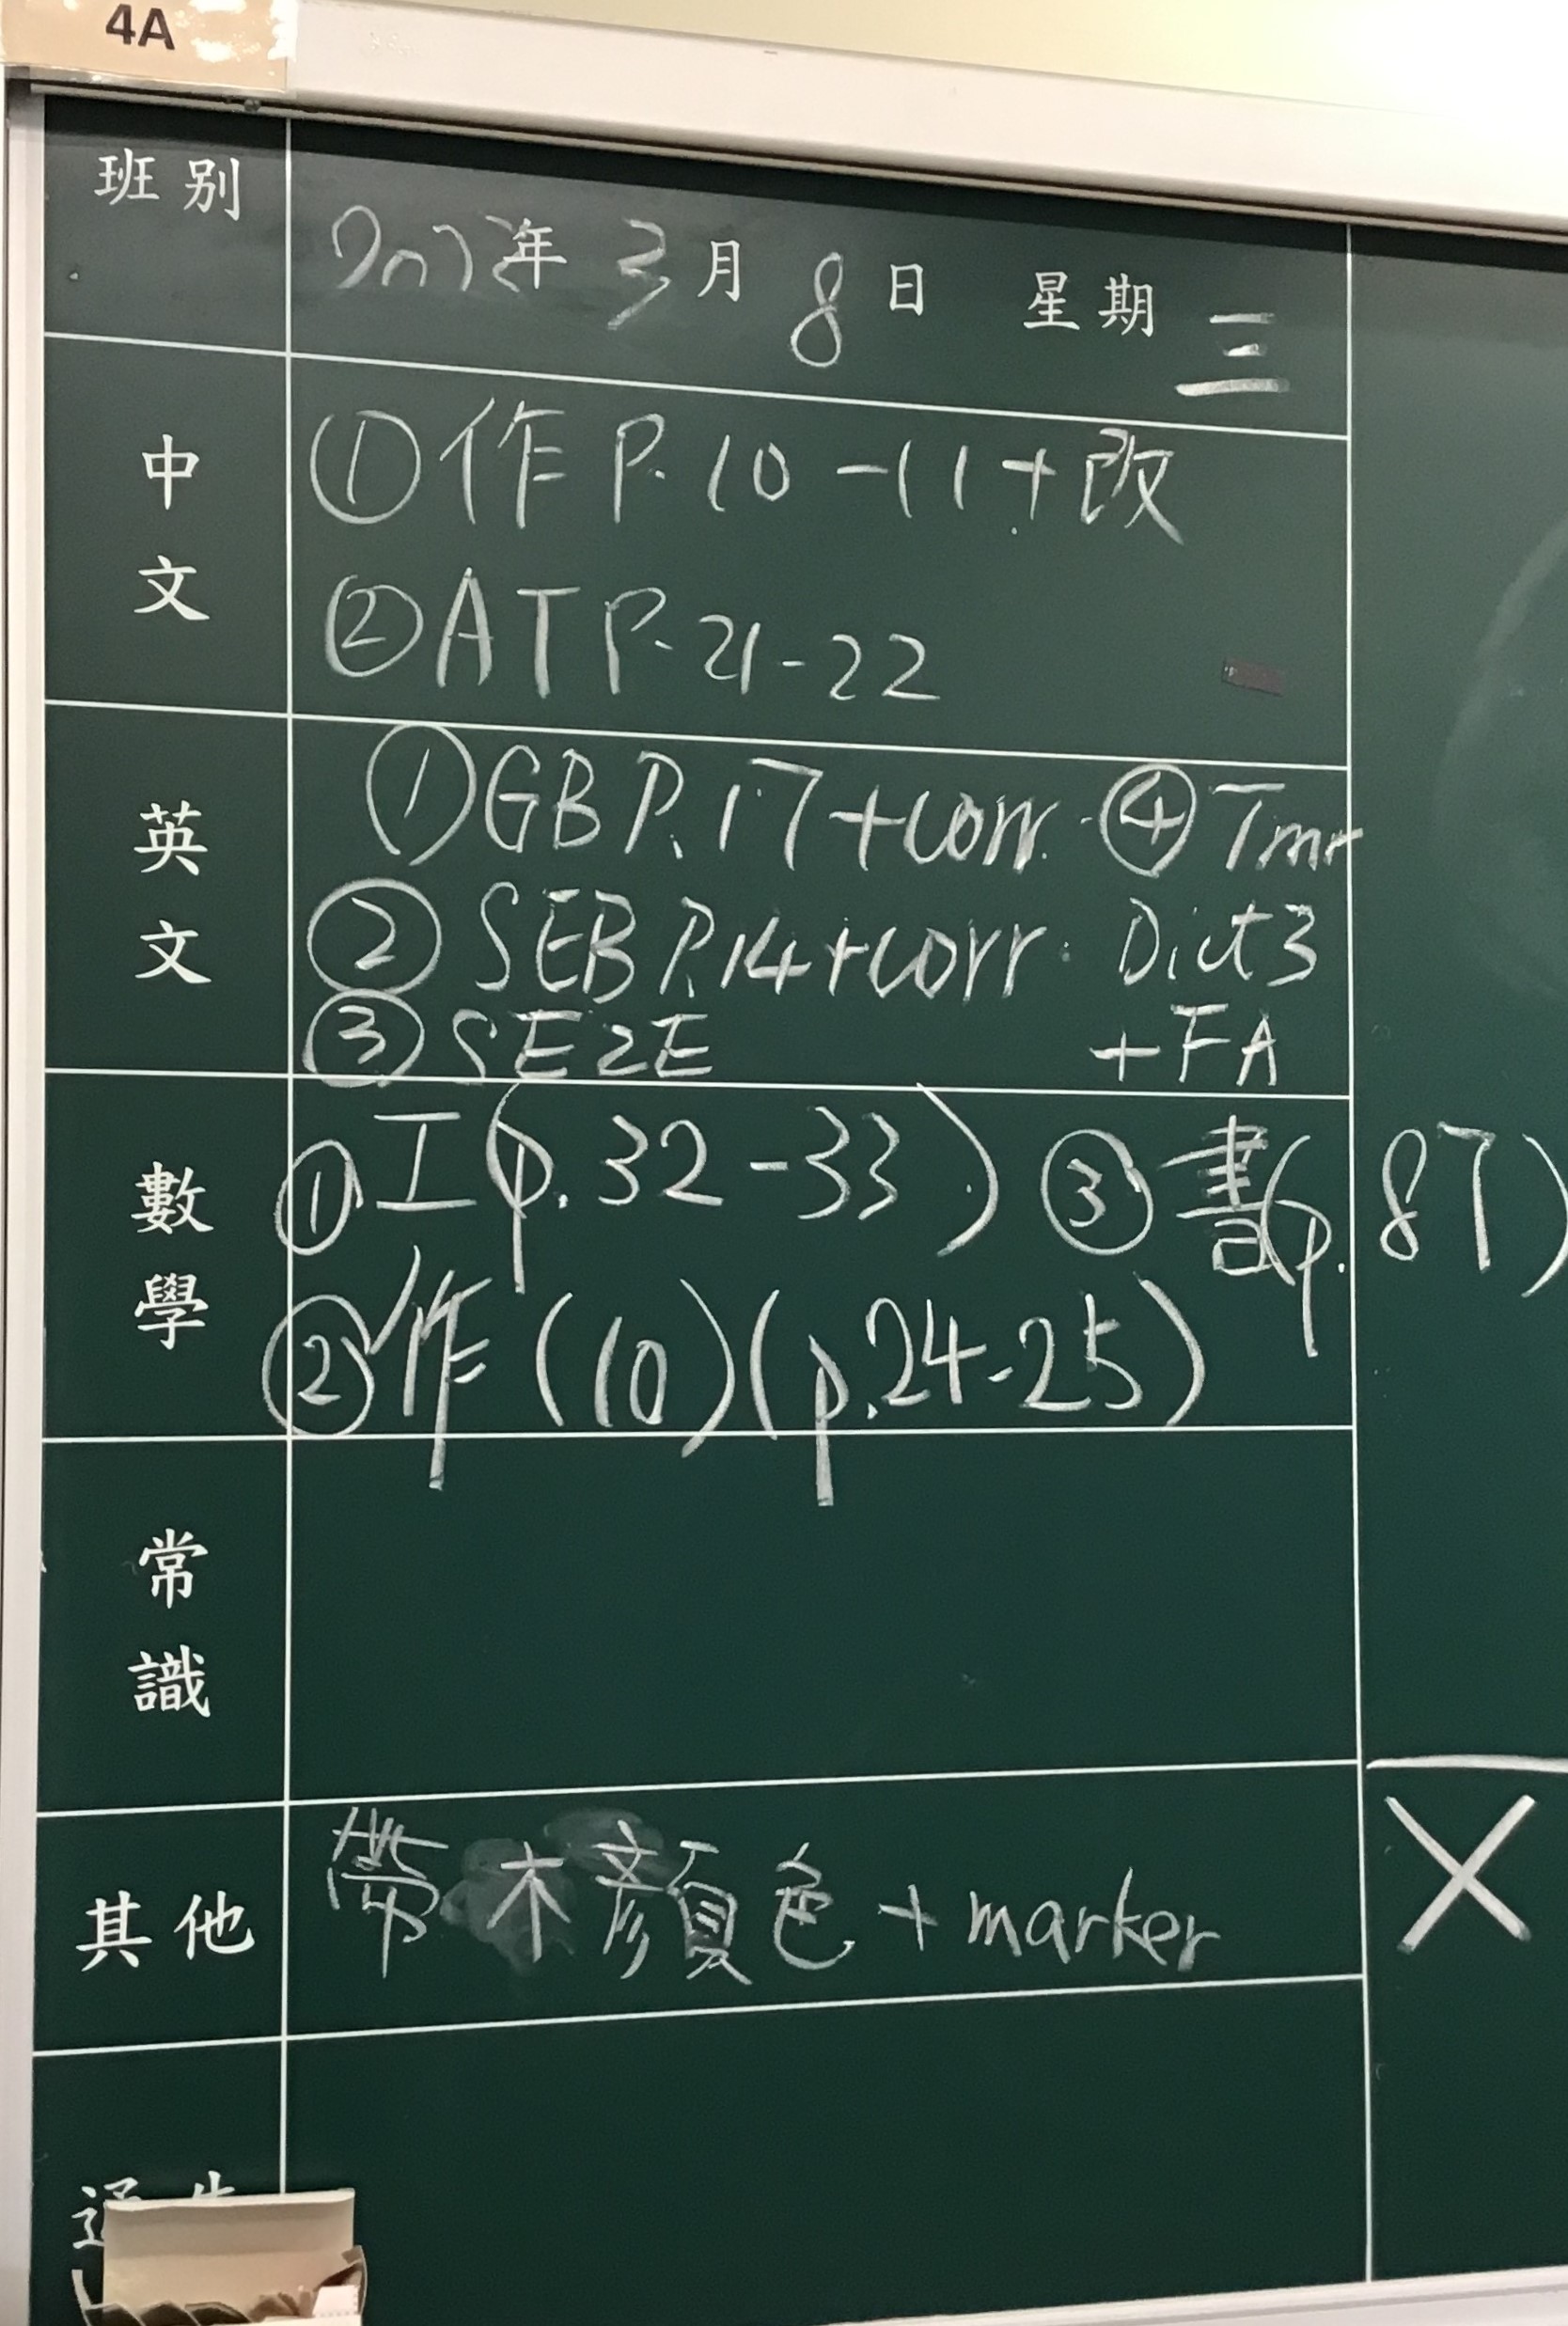 4A
班別
年 3 月 8 日 星期 三
中文
① 作 P.10-11+改
② AT P.21-22
英文
① GB P.17+corr. ④ Tmr
② SEB P.14+corr. Dict3
③ SE2E +FA
數學
① 工(p.32-33) ③ 書(p.87)
② 作(10)(p.24-25)
常識
其他
帶木顏色+marker